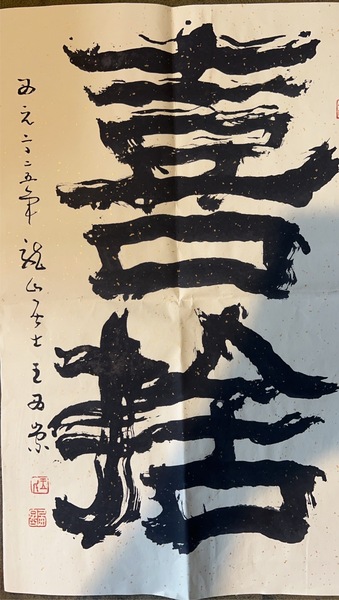 喜捨
西元二〇二五年 龍山居士王西崇